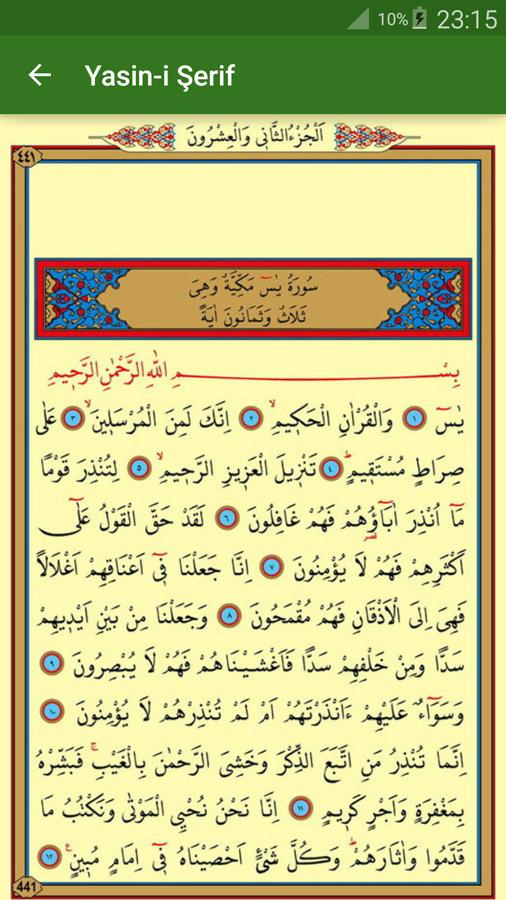 10% 23:15
← Yasin-i Şerif
اَلْجُزْءُ الثَّانٖى وَالْعِشْرُونَ
٤٤١
سُورَةُ يٰسٓ مَكِّيَّةٌ وَهِىَ
ثَلَاثٌ وَثَمَانُونَ اٰيَةً
بِسْمِ اللّٰهِ الرَّحْمٰنِ الرَّحٖيمِ
يٰسٓ ﴿١﴾ وَالْقُرْاٰنِ الْحَكٖيمِۙ ﴿٢﴾ اِنَّكَ لَمِنَ الْمُرْسَلٖينَۙ ﴿٣﴾ عَلٰى
صِرَاطٍ مُسْتَقٖيمٍؕ ﴿٤﴾ تَنْزٖيلَ الْعَزٖيزِ الرَّحٖيمِۙ ﴿٥﴾ لِتُنْذِرَ قَوْمًا
مَٓا اُنْذِرَ اٰبَٓاؤُ۬هُمْ فَهُمْ غَافِلُونَ ﴿٦﴾ لَقَدْ حَقَّ الْقَوْلُ عَلٰٓى
اَكْثَرِهِمْ فَهُمْ لَا يُؤْمِنُونَ ﴿٧﴾ اِنَّا جَعَلْنَا فٖٓى اَعْنَاقِهِمْ اَغْلَالًا
فَهِىَ اِلَى الْاَذْقَانِ فَهُمْ مُقْمَحُونَ ﴿٨﴾ وَجَعَلْنَا مِنْ بَيْنِ اَيْدٖيهِمْ
سَدًّا وَمِنْ خَلْفِهِمْ سَدًّا فَاَغْشَيْنَاهُمْ فَهُمْ لَا يُبْصِرُونَ ﴿٩﴾
وَسَوَٓاءٌ عَلَيْهِمْ ءَاَنْذَرْتَهُمْ اَمْ لَمْ تُنْذِرْهُمْ لَا يُؤْمِنُونَ ﴿١٠﴾
اِنَّمَا تُنْذِرُ مَنِ اتَّبَعَ الذِّكْرَ وَخَشِىَ الرَّحْمٰنَ بِالْغَيْبِۚ فَبَشِّرْهُ
بِمَغْفِرَةٍ وَاَجْرٍ كَرٖيمٍ ﴿١١﴾ اِنَّا نَحْنُ نُحْيِى الْمَوْتٰى وَنَكْتُبُ مَا
قَدَّمُوا وَاٰثَارَهُمْؕ وَكُلَّ شَىْءٍ اَحْصَيْنَاهُ فٖٓى اِمَامٍ مُبٖينٍ ﴿١٢﴾
441